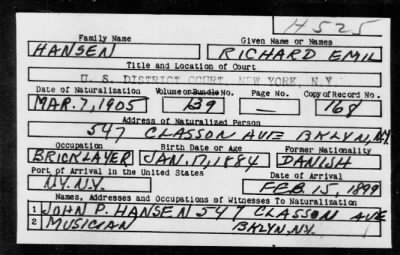 H525
Family Name Given Name or Names
HANSEN RICHARD EMIL
Title and Location of Court
U. S. DISTRICT COURT, NEW YORK, N.Y.
Date of Naturalization Volume or Bundle No. Page No. Copy of Record No.
MAR. 7, 1905 139 — 168
Address of Naturalized Person
547 CLASSON AVE BKLYN, N.Y.
Occupation Birth Date or Age Former Nationality
BRICKLAYER JAN. 17, 1884 DANISH
Port of Arrival in the United States Date of Arrival
N.Y. N.Y. FEB. 15, 1899
Names, Addresses and Occupations of Witnesses To Naturalization
1 JOHN P. HANSEN 547 CLASSON AVE
2 MUSICIAN BKLYN, N.Y.